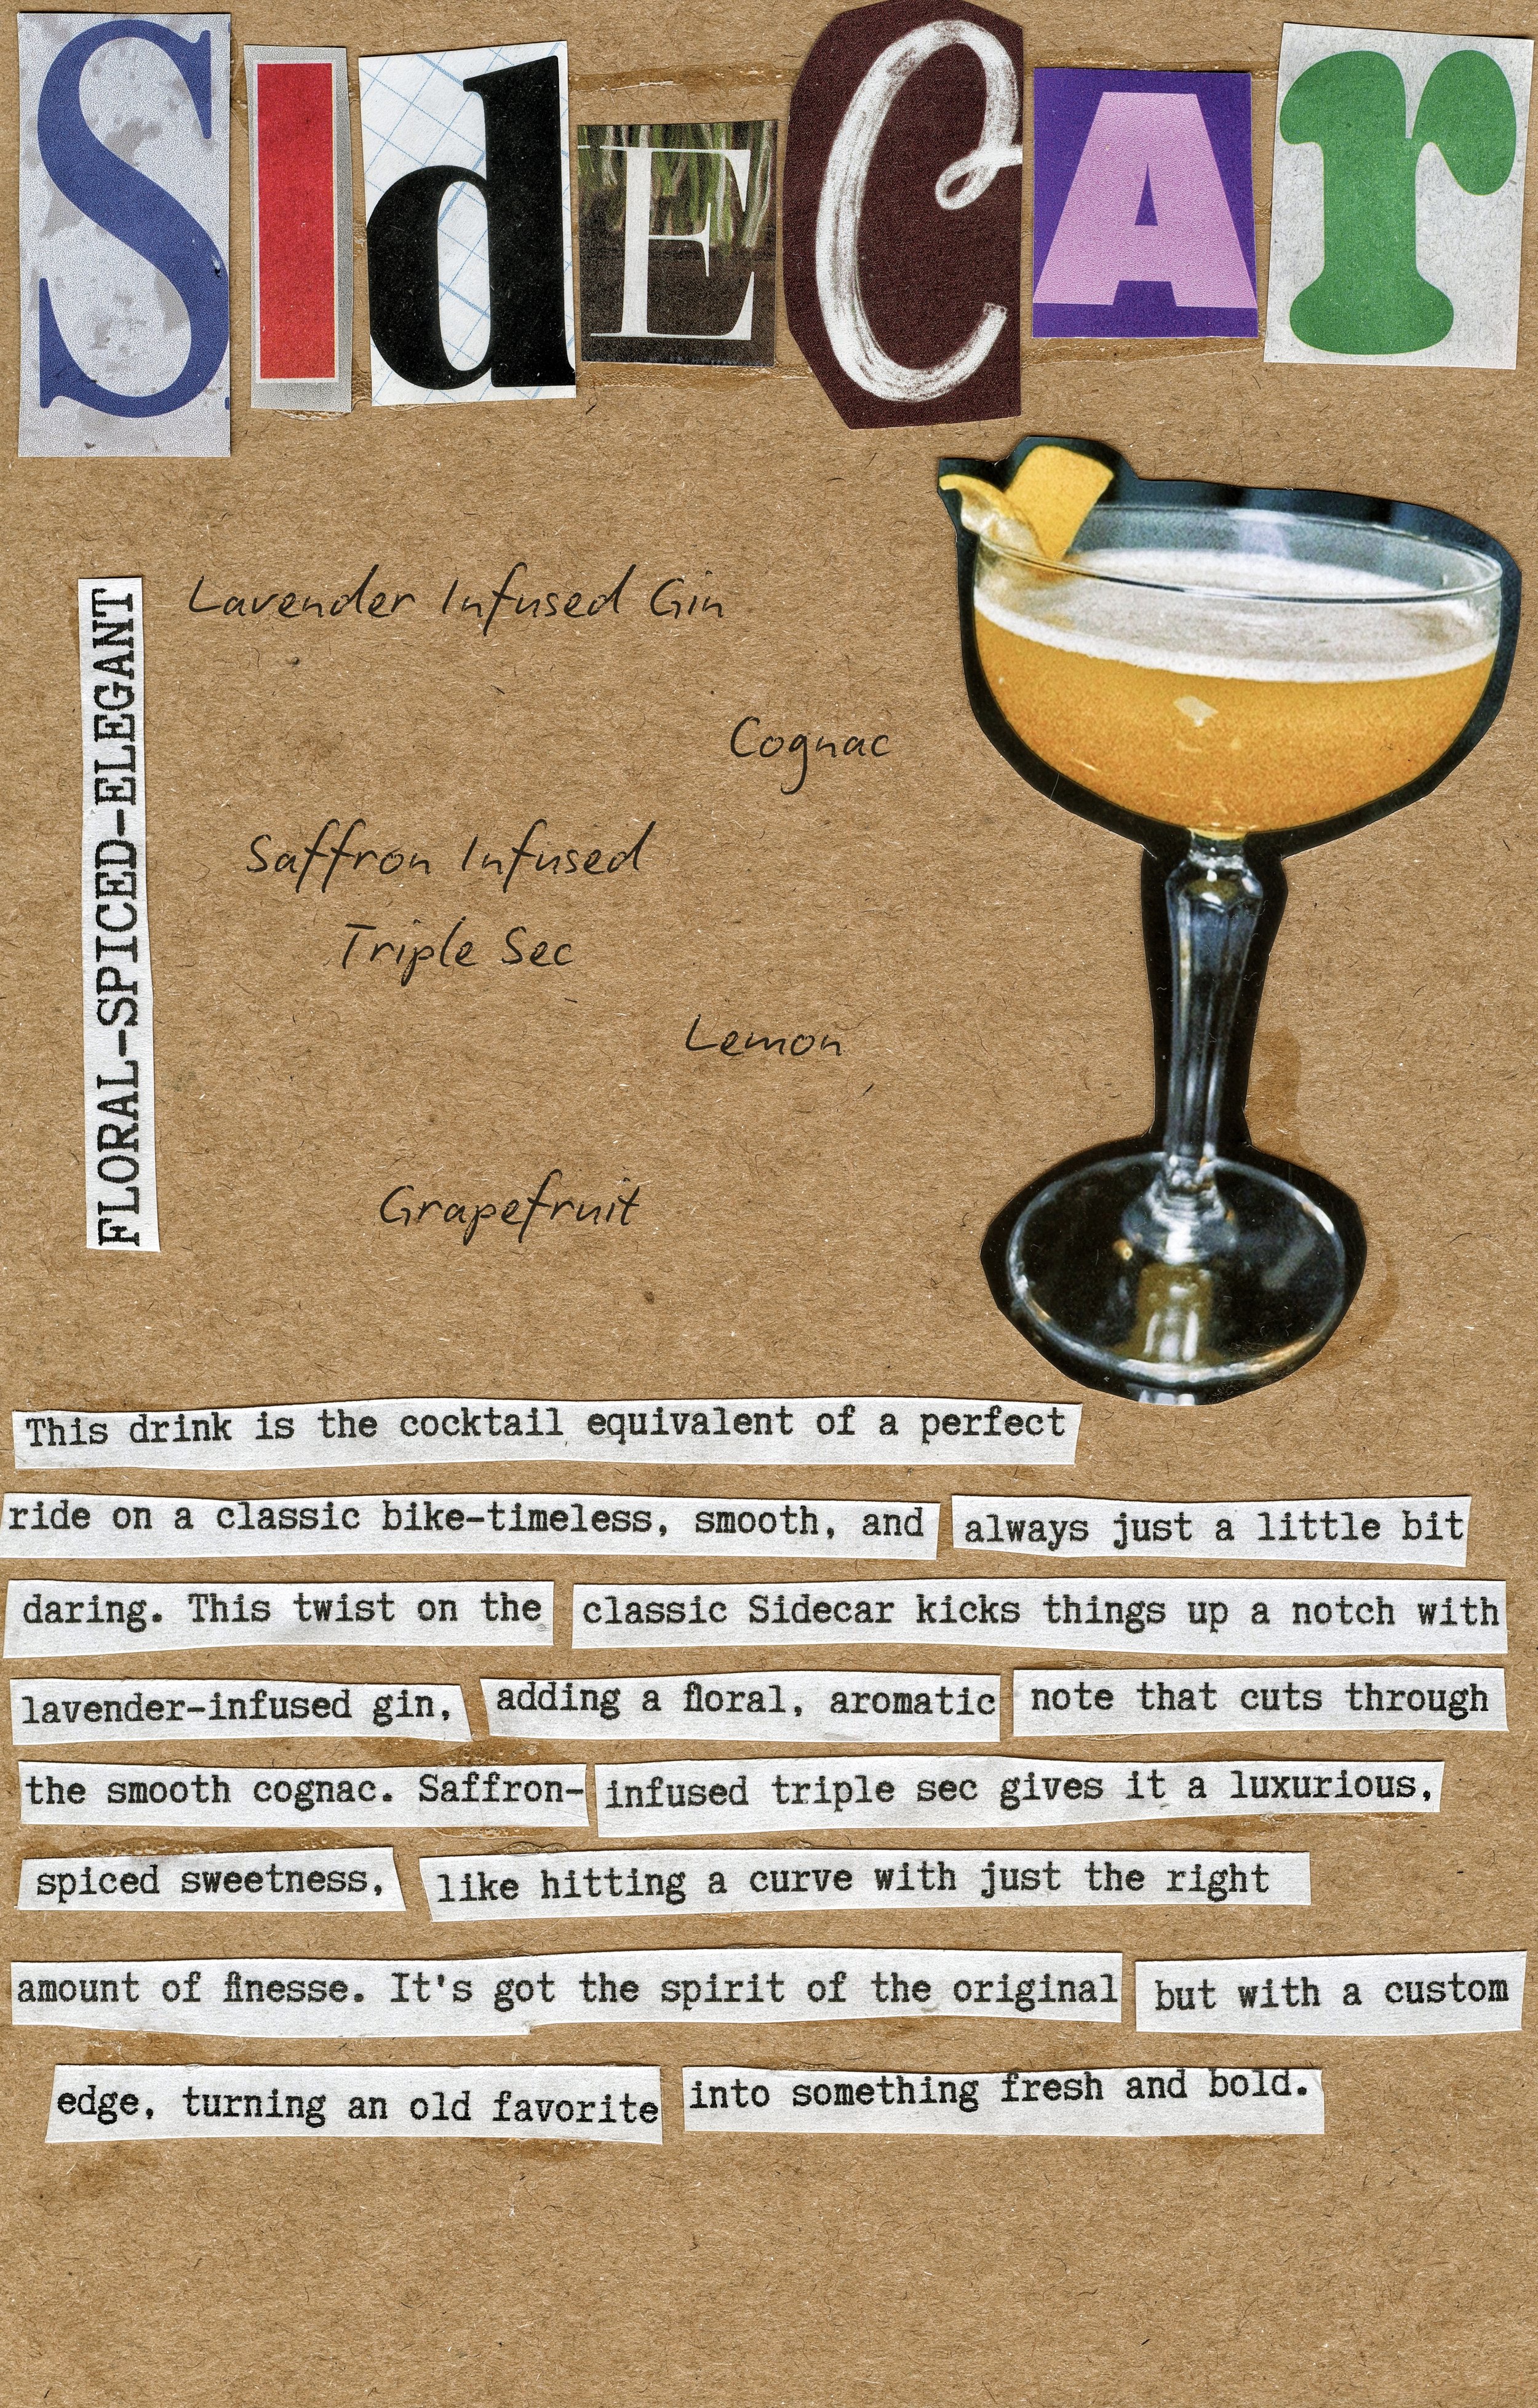 SIdECAr
Lavender Infused Gin
FLORAL-SPICED-ELEGANT
Cognac
Saffron Infused
Triple Sec
Lemon
Grapefruit
This drink is the cocktail equivalent of a perfect
ride on a classic bike-timeless, smooth, and always just a little bit
daring. This twist on the classic Sidecar kicks things up a notch with
lavender-infused gin, adding a floral, aromatic note that cuts through
the smooth cognac. Saffron-infused triple sec gives it a luxurious,
spiced sweetness, like hitting a curve with just the right
amount of finesse. It's got the spirit of the original but with a custom
edge, turning an old favorite into something fresh and bold.